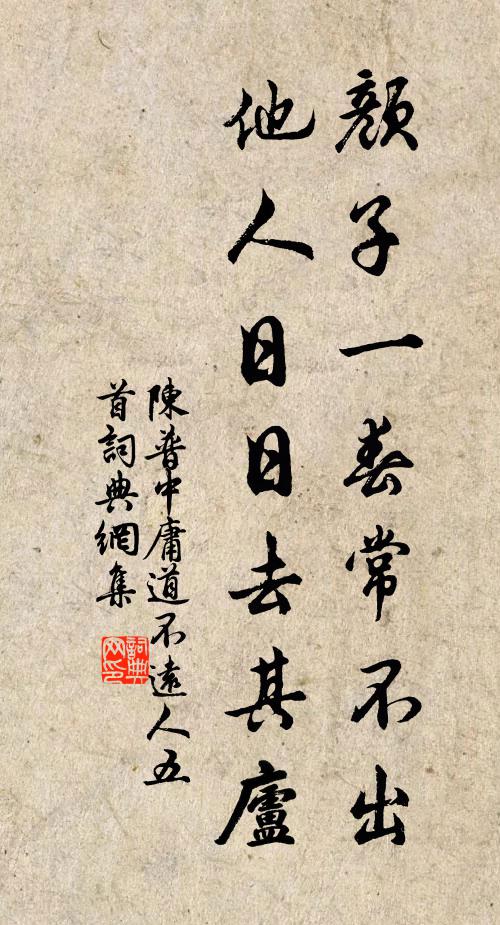 顏子一春常不出
他人日日去其廬
陳普中庸道不遠人五
首詞典網集
詞典网印